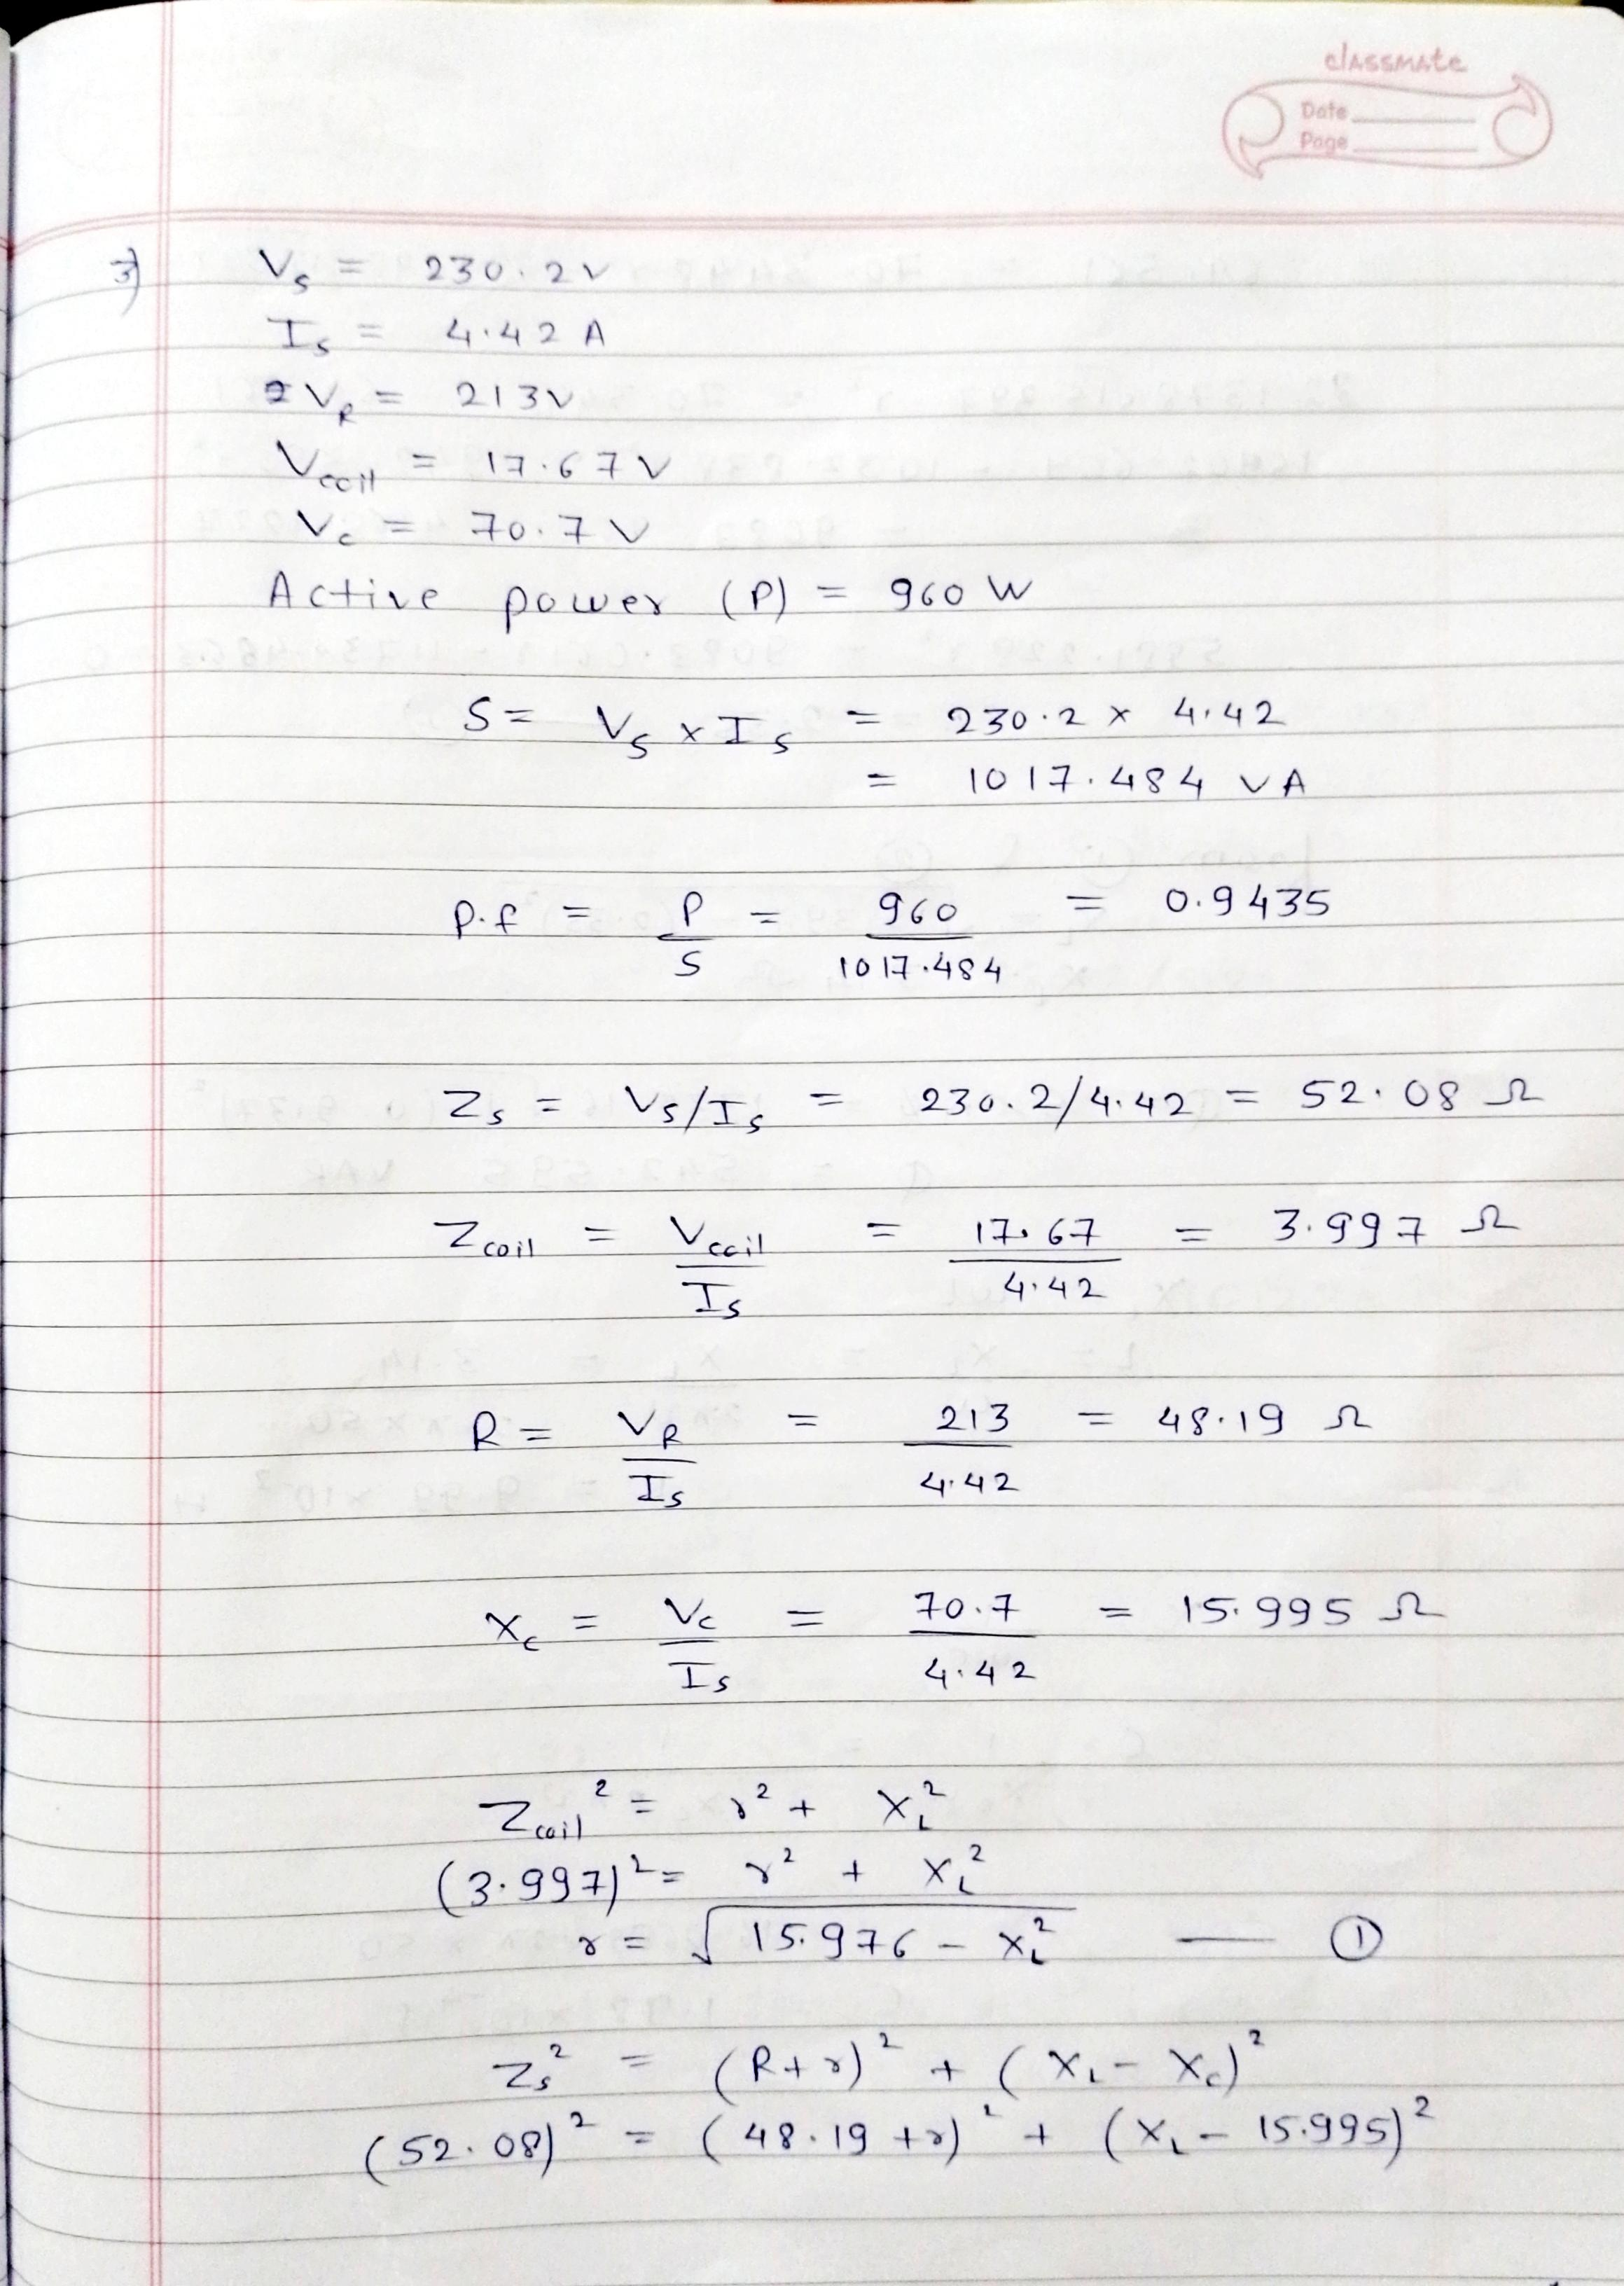 classmate
Date
Page
3) Vs = 230.2 V
Is = 4.42 A
VR = 213 V
Vcoil = 17.67 V
Vc = 70.7 V
Active power (P) = 960 W
S = Vs × Is = 230.2 × 4.42
= 1017.484 VA
P.f = P/S = 960/1017.484 = 0.9435
Zs = Vs/Is = 230.2/4.42 = 52.08 Ω
Zcoil = Vcoil/Is = 17.67/4.42 = 3.997 Ω
R = VR/Is = 213/4.42 = 48.19 Ω
Xc = Vc/Is = 70.7/4.42 = 15.995 Ω
Zcoil² = r² + XL²
(3.997)² = r² + XL²
r = √(15.976 - XL²) — ①
Zs² = (R+r)² + (XL - Xc)²
(52.08)² = (48.19 + r)² + (XL - 15.995)²